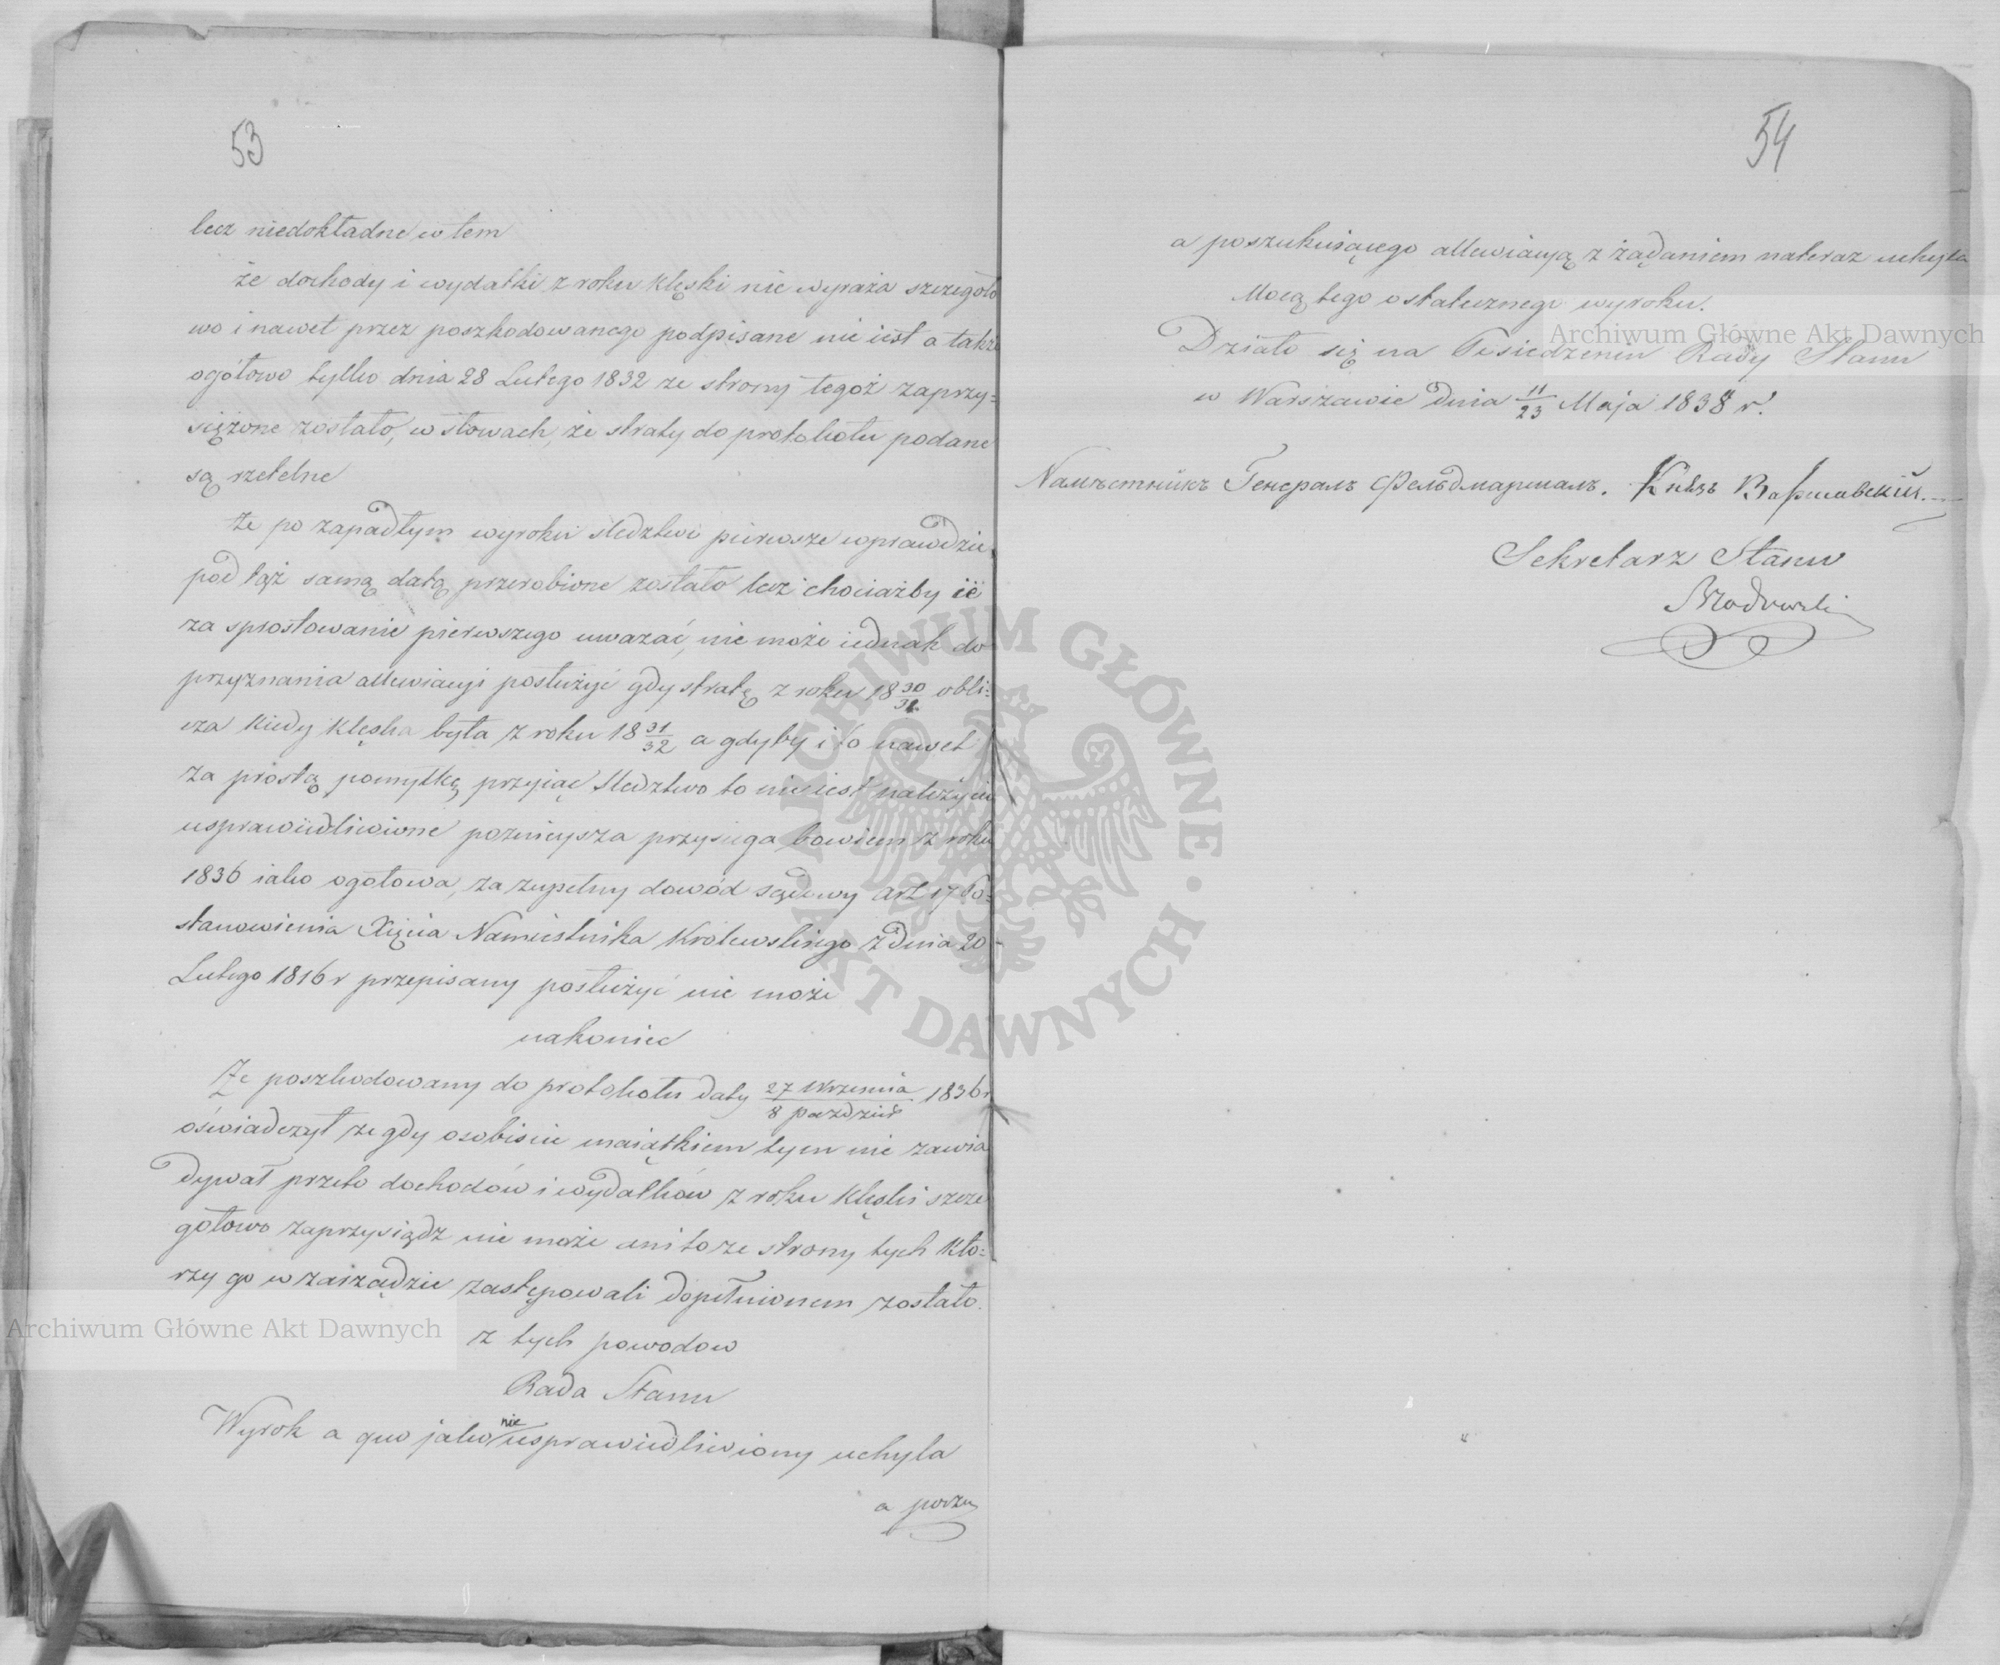 53
lecz niedokładne w tem
że dochody i wydatki z roku klęski nie wyraża szczegóło
wo i nawet przez poszkodowanego podpisane nie iest a także
ogółowo tylko dnia 28 Lutego 1832 ze strony tegoż zaprzy=
siężone zostało, w słowach, że straty do protokołu podane
są rzetelne
że po zapadłym wyroku śledztwo pierwsze wprawdzie
pod tąż samą datą przerobione zostało lecz chociażby ie
za sprostowanie pierwszego uważać, nie może iednak do
przyznania allewiacyi posłużyć gdy stratę z roku 18 30/31 obli=
cza kiedy klęska była z roku 18 31/32 a gdyby i to nawet
za prostą pomyłkę przyiąć śledztwo to nie iest należycie
usprawiedliwione poznieysza przysięga bowiem z roku
1836 iako ogółowa, za zupełny dowód sądowy art 17 Po=
stanowienia Xięcia Namiestnika Królewskiego z dnia 20
Lutego 1816 r przepisany posłużyć nie może
nakoniec
Że poszkodowany do protokołu daty 27 Września/8 paździer 1836 r
oświadczył że gdy osobiście maiątkiem tym nie zawia
dywał przeto dochodów i wydatków z roku klęski szcze
gółowo zaprzysiądz nie może ani to ze strony tych któ=
rzy go w zarządzie zastępowali dopełnionem zostało.
z tych powodow
Rada Stanu
Wyrok a quo jako nieusprawiedliwiony uchyla
a poszu
54
a poszukuiącego allewiacyą z żądaniem nateraz uchyla
Mocą tego ostatecznego wyroku.
Działo się na Posiedzeniu Rady Stanu
w Warszawie dnia 11/23 Maja 1838 r.
Намѣстникъ Генералъ Фельдмаршалъ. Князь Варшавскій.
Sekretarz Stanu
Archiwum Główne Akt Dawnych
Archiwum Główne Akt Dawnych
ARCHIWUM GŁÓWNE · AKT DAWNYCH ·